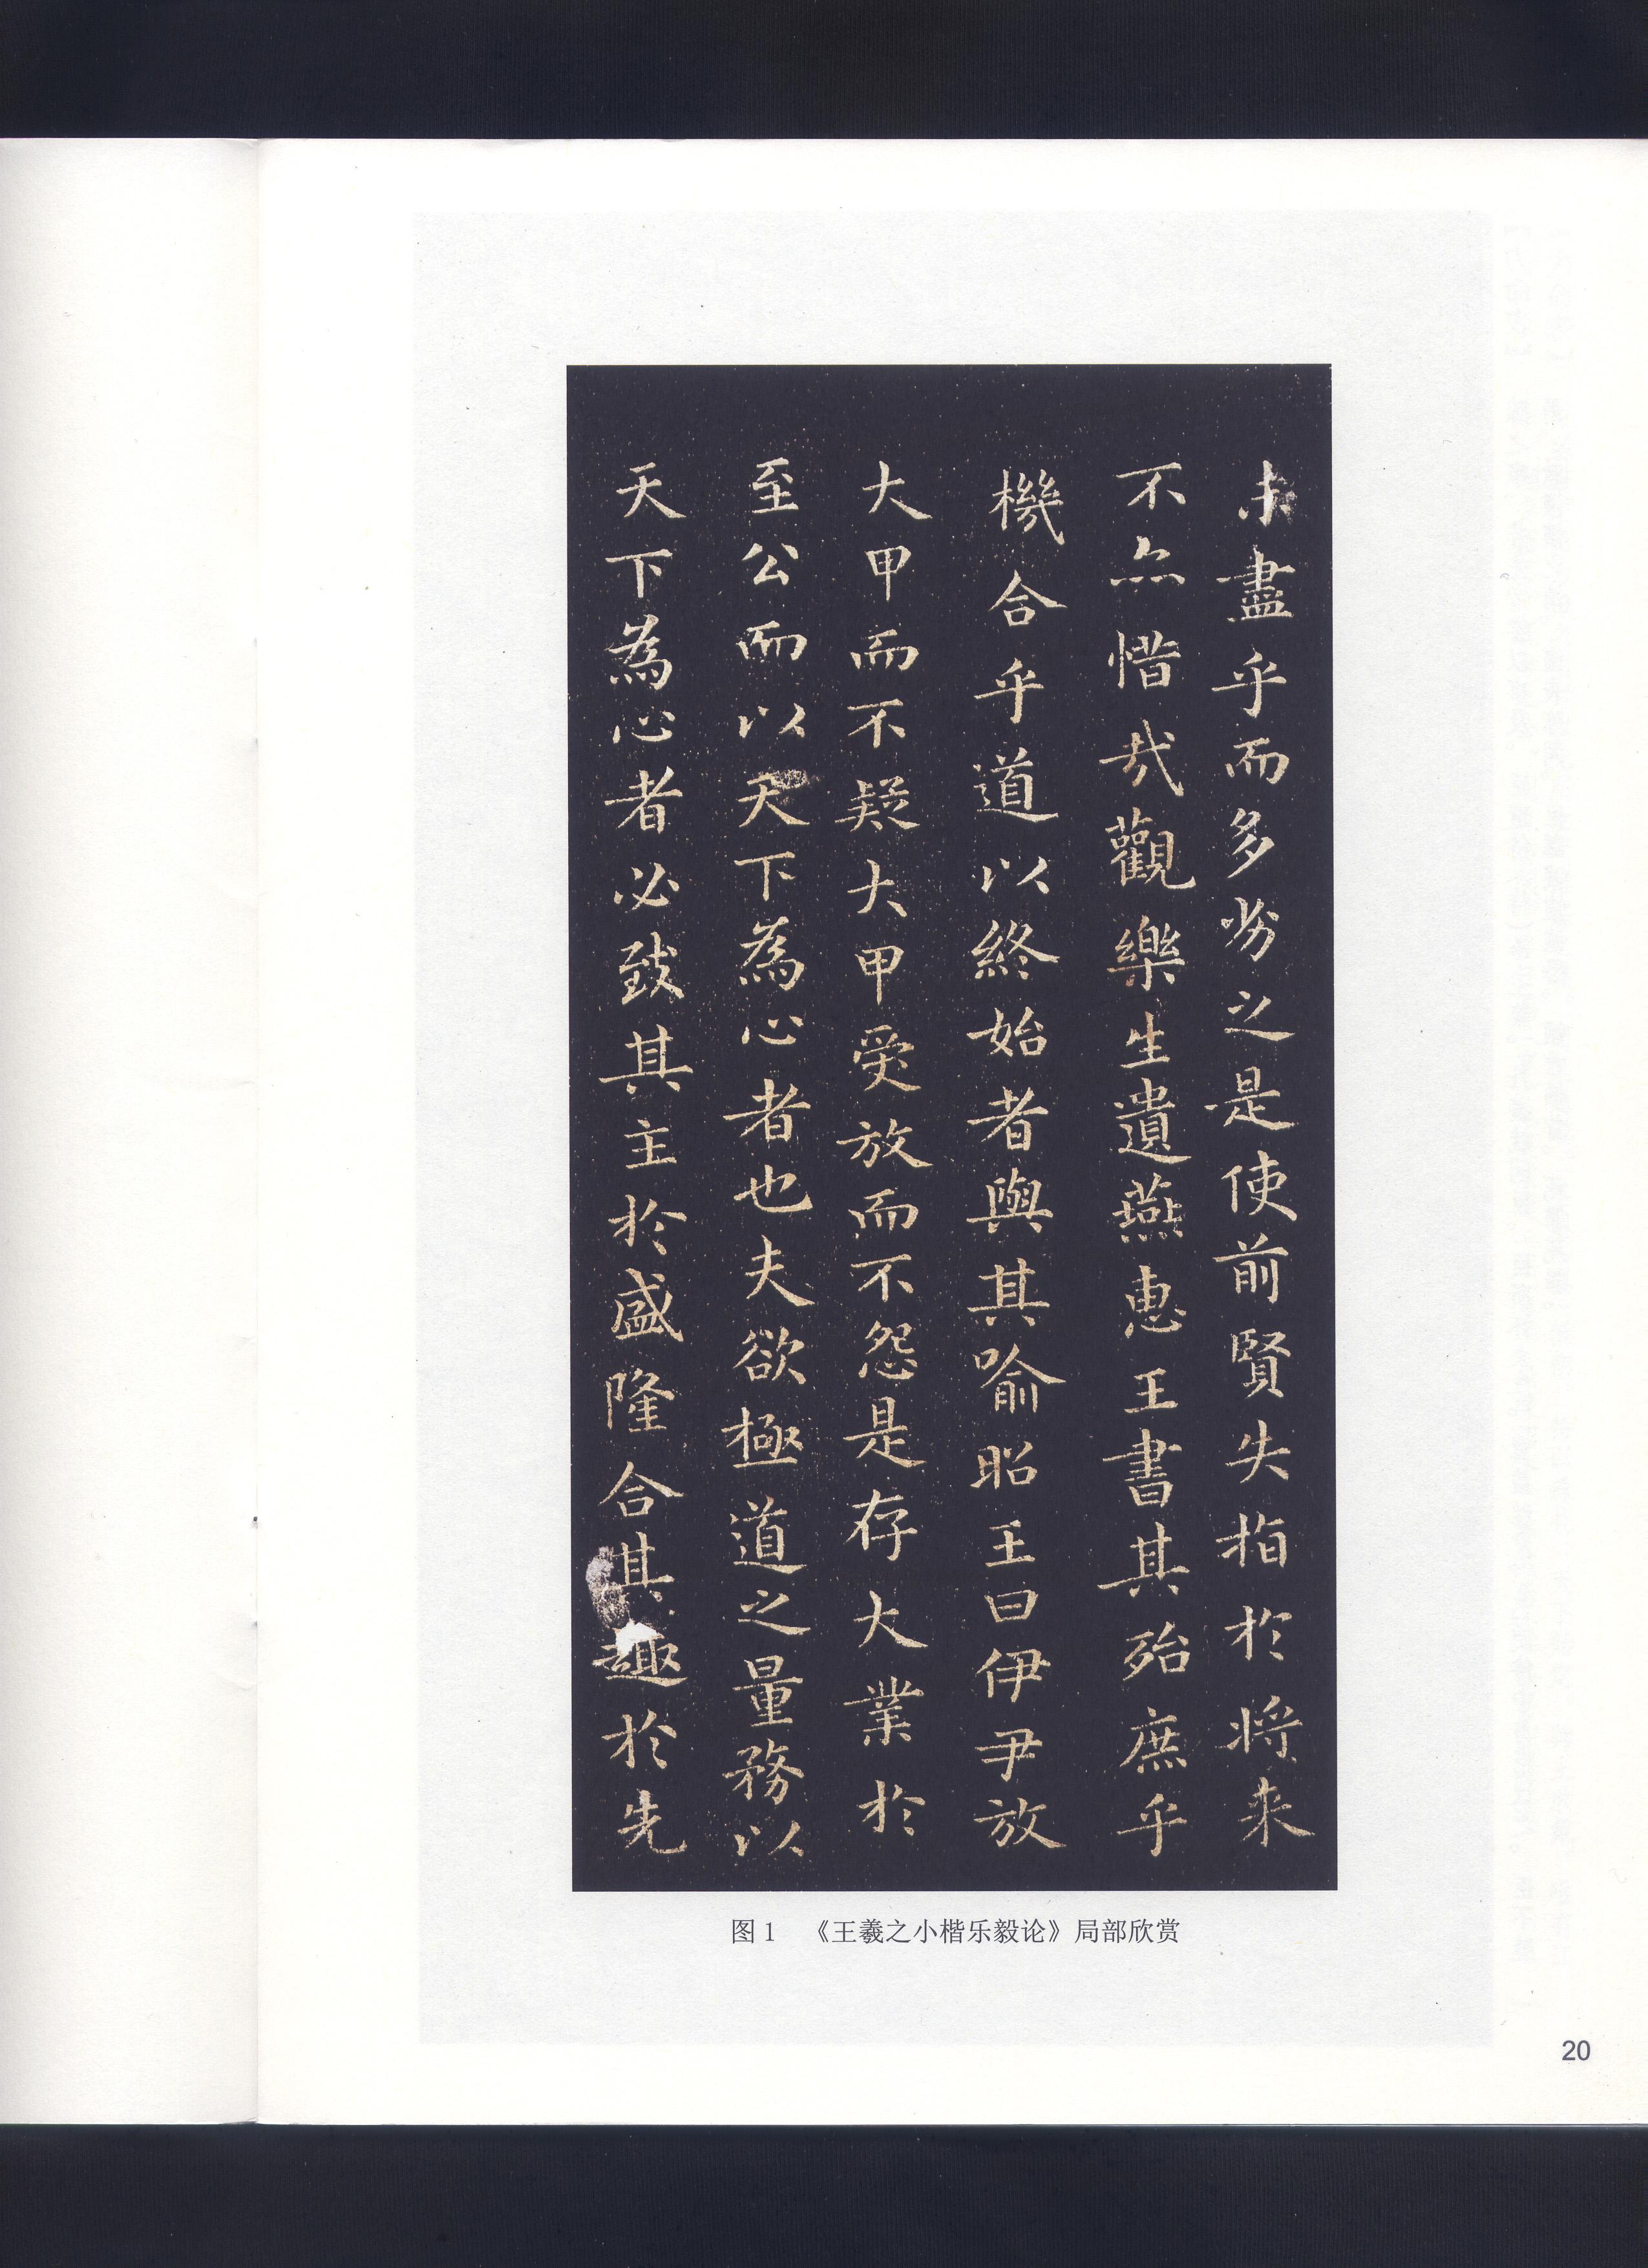 未盡乎而多劣之是使前賢失指於將来
不亦惜哉觀樂生遺燕惠王書其殆庶乎
機合乎道以終始者與其喻昭王曰伊尹放
大甲而不疑大甲受放而不怨是存大業於
至公而以天下為心者也夫欲極道之量務以
天下為心者必致其主於盛隆合其趣於先
图1 《王羲之小楷乐毅论》局部欣赏
20